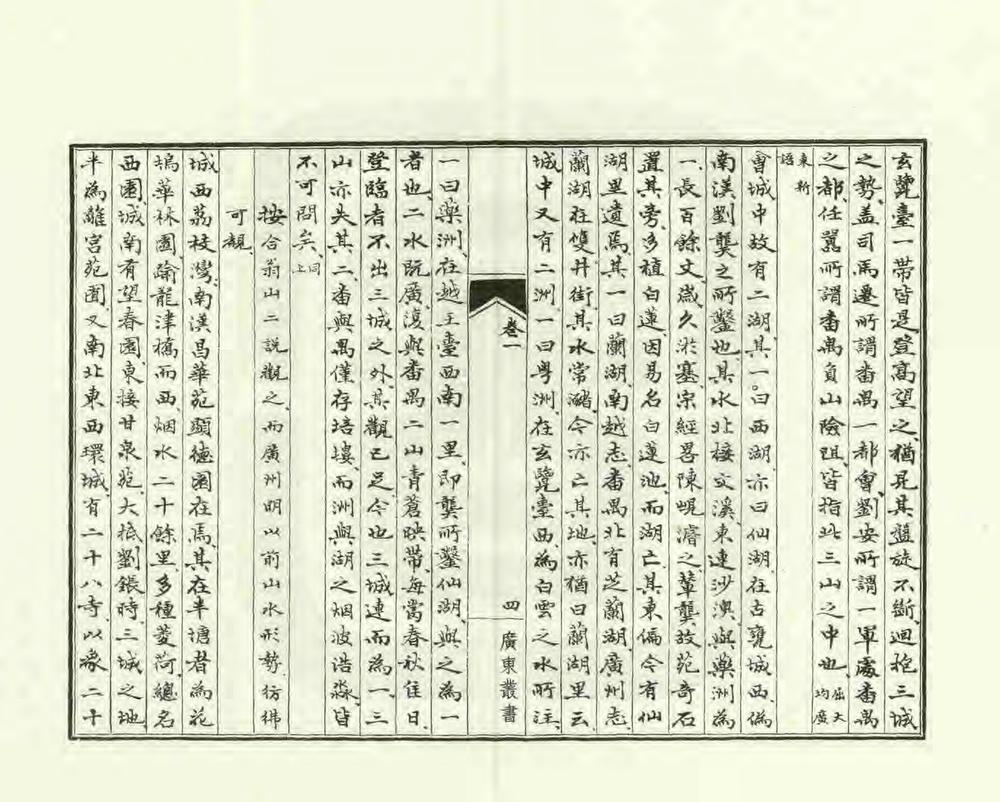 玄覽臺一帶皆是登高望之、猶見其盤旋不斷、迴抱三城
之勢、蓋司馬遷所謂番禺一都會、劉安所謂一軍處番禺
之都、任囂所謂番禺負山險阻、皆指此三山之中也、屈大均廣
東新語
會城中故有二湖、其一曰西湖、亦曰仙湖、在古甕城西、偽
南漢劉龑之所鑿也、其水北接文溪、東連沙澳、與藥洲為
一、長百餘丈、歲久淤塞、宗經畧陳峴濬之、輦龑故苑奇石
置其旁、多植白蓮、因易名白蓮池、而湖亡、其東偏今有仙
湖里遺焉、其一曰蘭湖、南越志番禺北有芝蘭湖、廣州志
蘭湖在雙井街、其水常瀦、今亦亡、其地亦猶曰蘭湖里云、
城中又有二洲、一曰粤洲、在玄覽臺西、為白雲之水所注、
卷一
四
廣東叢書
一曰藥洲、在越王臺西南一里、即龑所鑿仙湖、與之為一
者也、二水既廣、復與番禺二山青蒼映帶、每當春秋佳日、
登臨者不出三城之外、其觀已足、今也三城連而為一、三
山亦失其二、番與禺僅存培塿、而洲與湖之烟波浩淼、皆
不可問矣、同上
按合翁山二說觀之、而廣州明以前山水形勢、彷彿
可覩、
城西荔枝灣、南漢昌華苑顯德園在焉、其在半塘者為花
塢華林園、踰龍津橋而西、烟水二十餘里、多種菱荷、總名
西園、城南有望春園、東接甘泉苑、大抵劉鋹時三城之地、
半為離宮苑囿、又南北東西環城、有二十八寺、以象二十